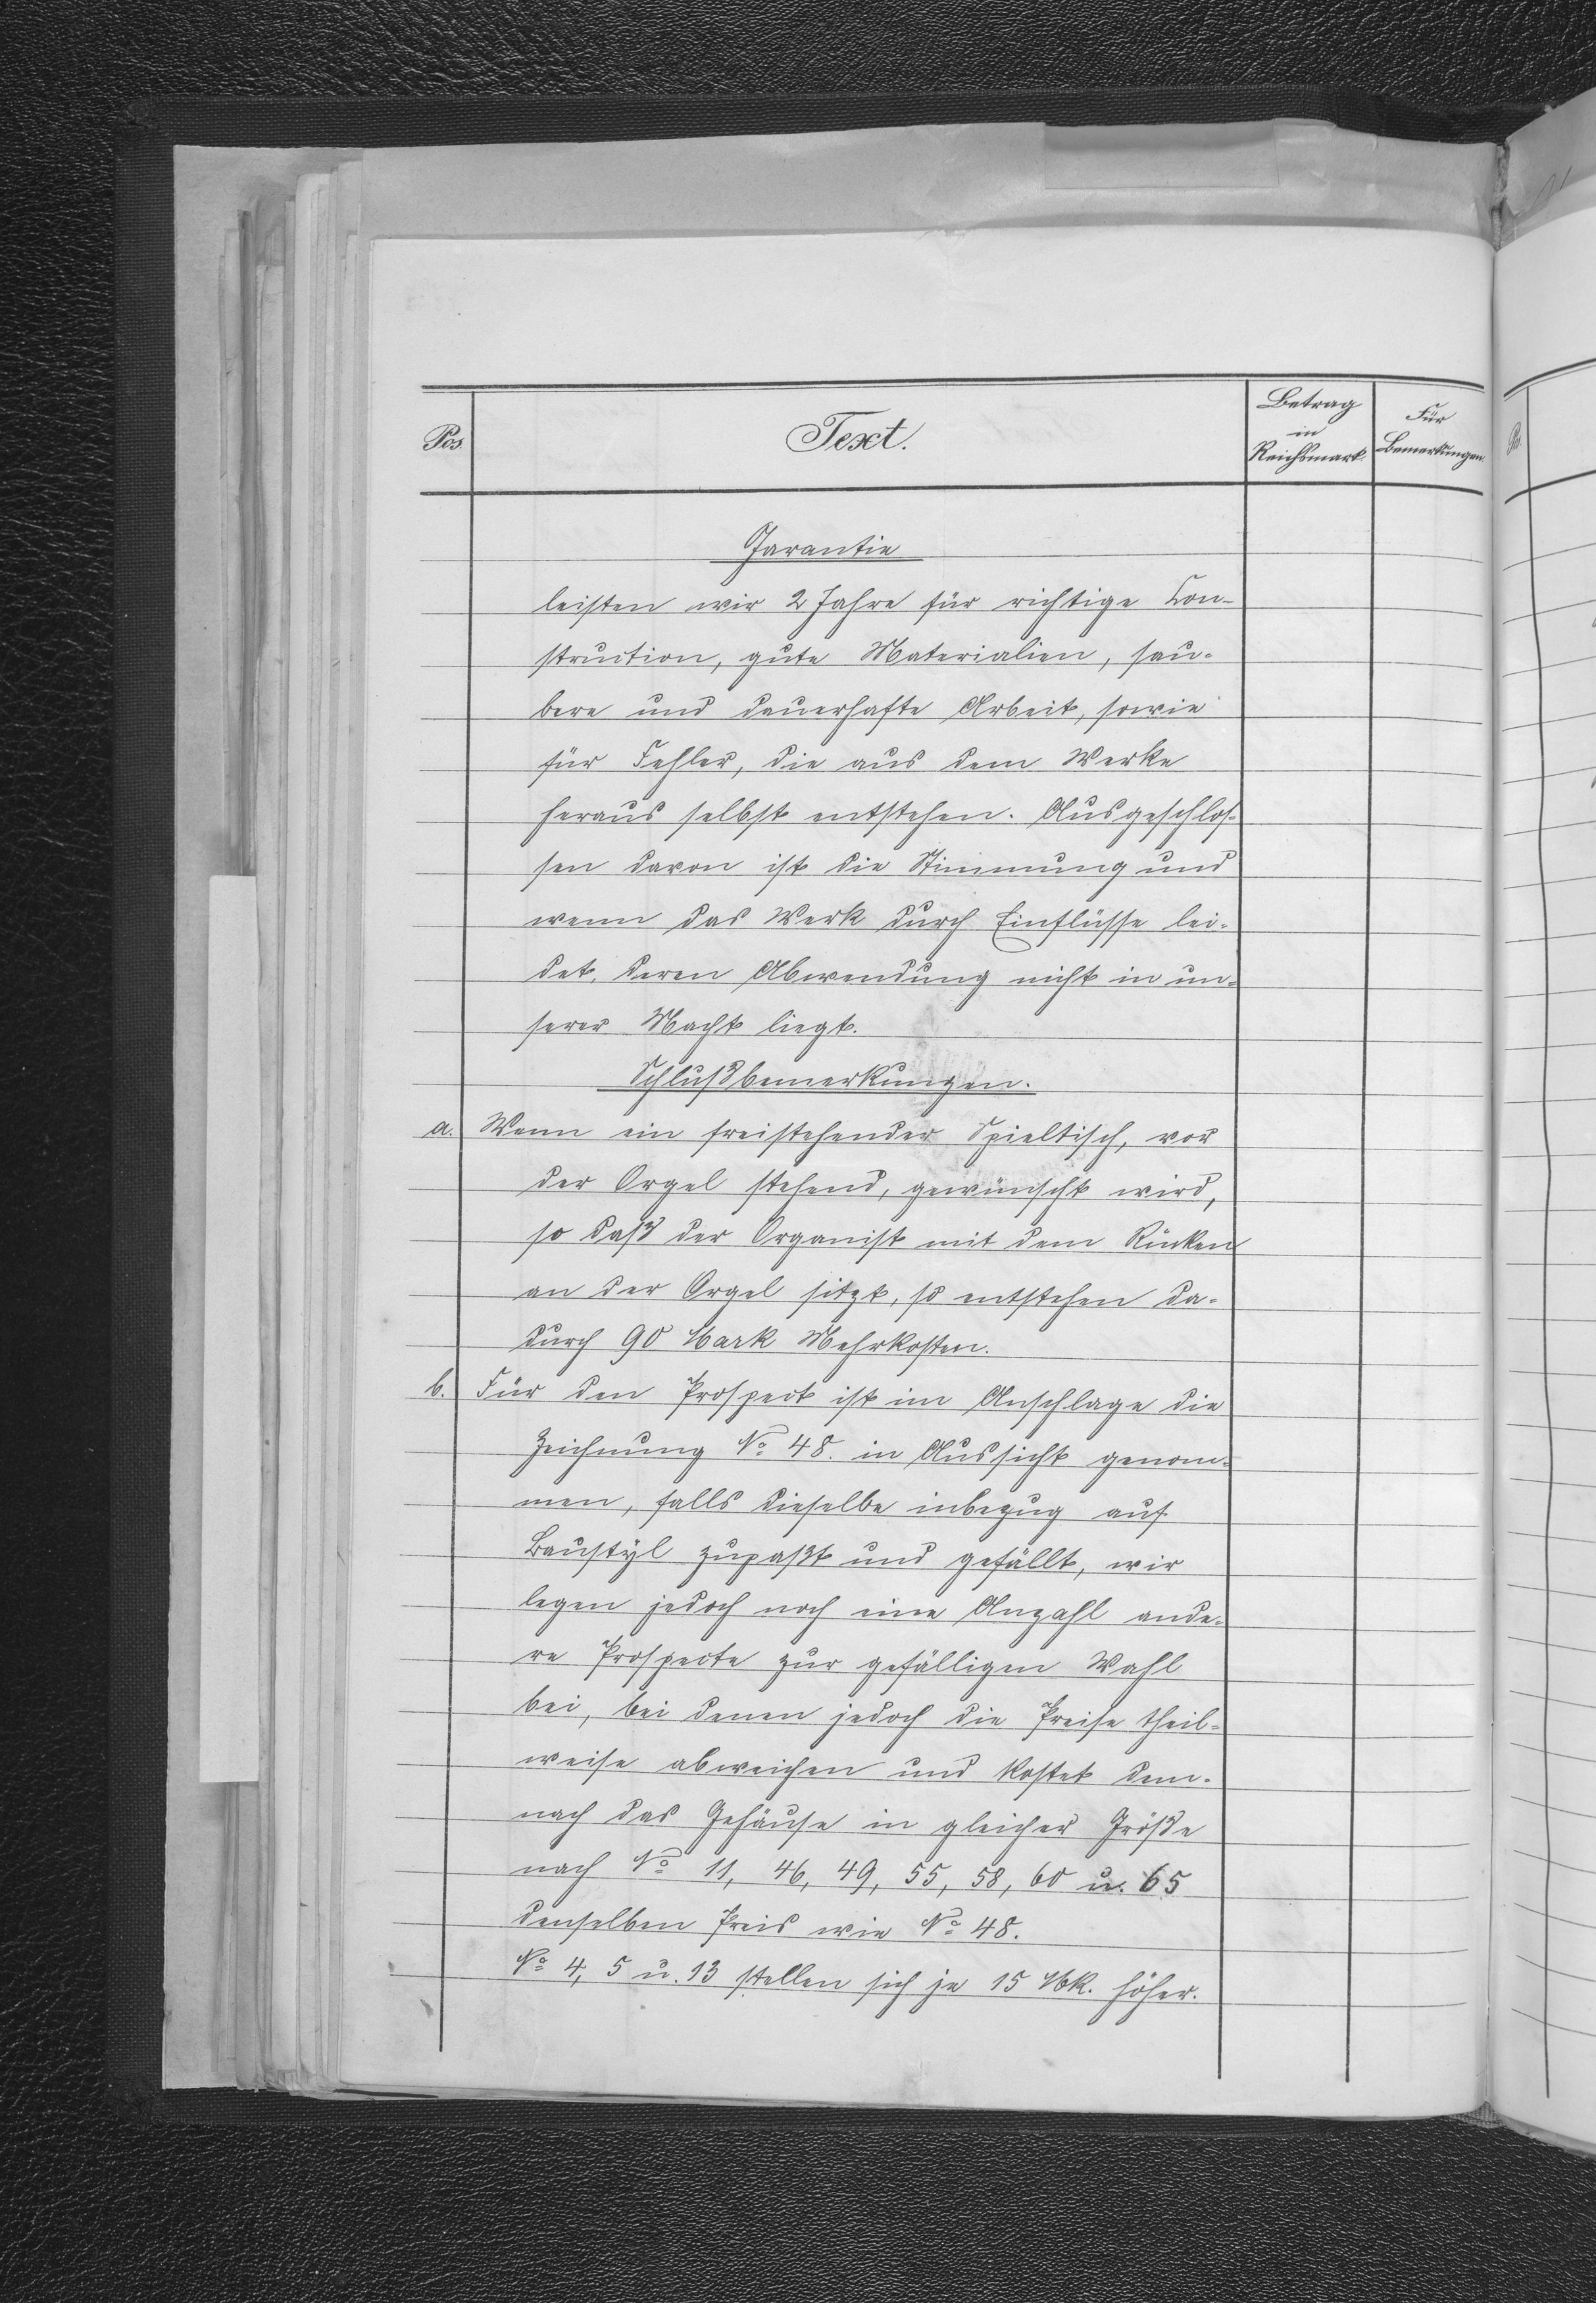 Pos.
Text.
Betrag
in
Reichsmark.
Für
Bemerkungen.
Garantie
leisten wir 2 Jahre für richtige Con-
struction, gute Materialien, sau-
bere und dauerhafte Arbeit, sowie
für Fehler, die aus dem Werke
heraus selbst entstehen. Ausgeschlos-
sen davon ist die Stimmung und
wenn das Werk durch Einflüsse lei-
det, deren Abwendung nicht in un-
serer Macht liegt.
Schlußbemerkungen.
a. Wenn ein freistehender Spieltisch, vor
der Orgel stehend, gewünscht wird,
so daß der Organist mit dem Rücken
an der Orgel sitzt, so entstehen da-
durch 90 Mark Mehrkosten.
b. Für den Prospect ist im Anschlage die
Zeichnung No 48. in Aussicht genom-
men, falls dieselbe inbezug auf
Baustyl zupaßt und gefällt, wir
legen jedoch noch eine Anzahl ande-
re Prospecte zur gefälligen Wahl
bei, bei denen jedoch die Preise theil-
weise abweichen und kostet dem-
nach das Gehäuse in gleicher Größe
nach No 11, 46, 49, 55, 58, 60 u. 65
denselben Preis wie No 48.
No 4, 5 u. 13 stellen sich je 15 Mk. höher.
Pos.